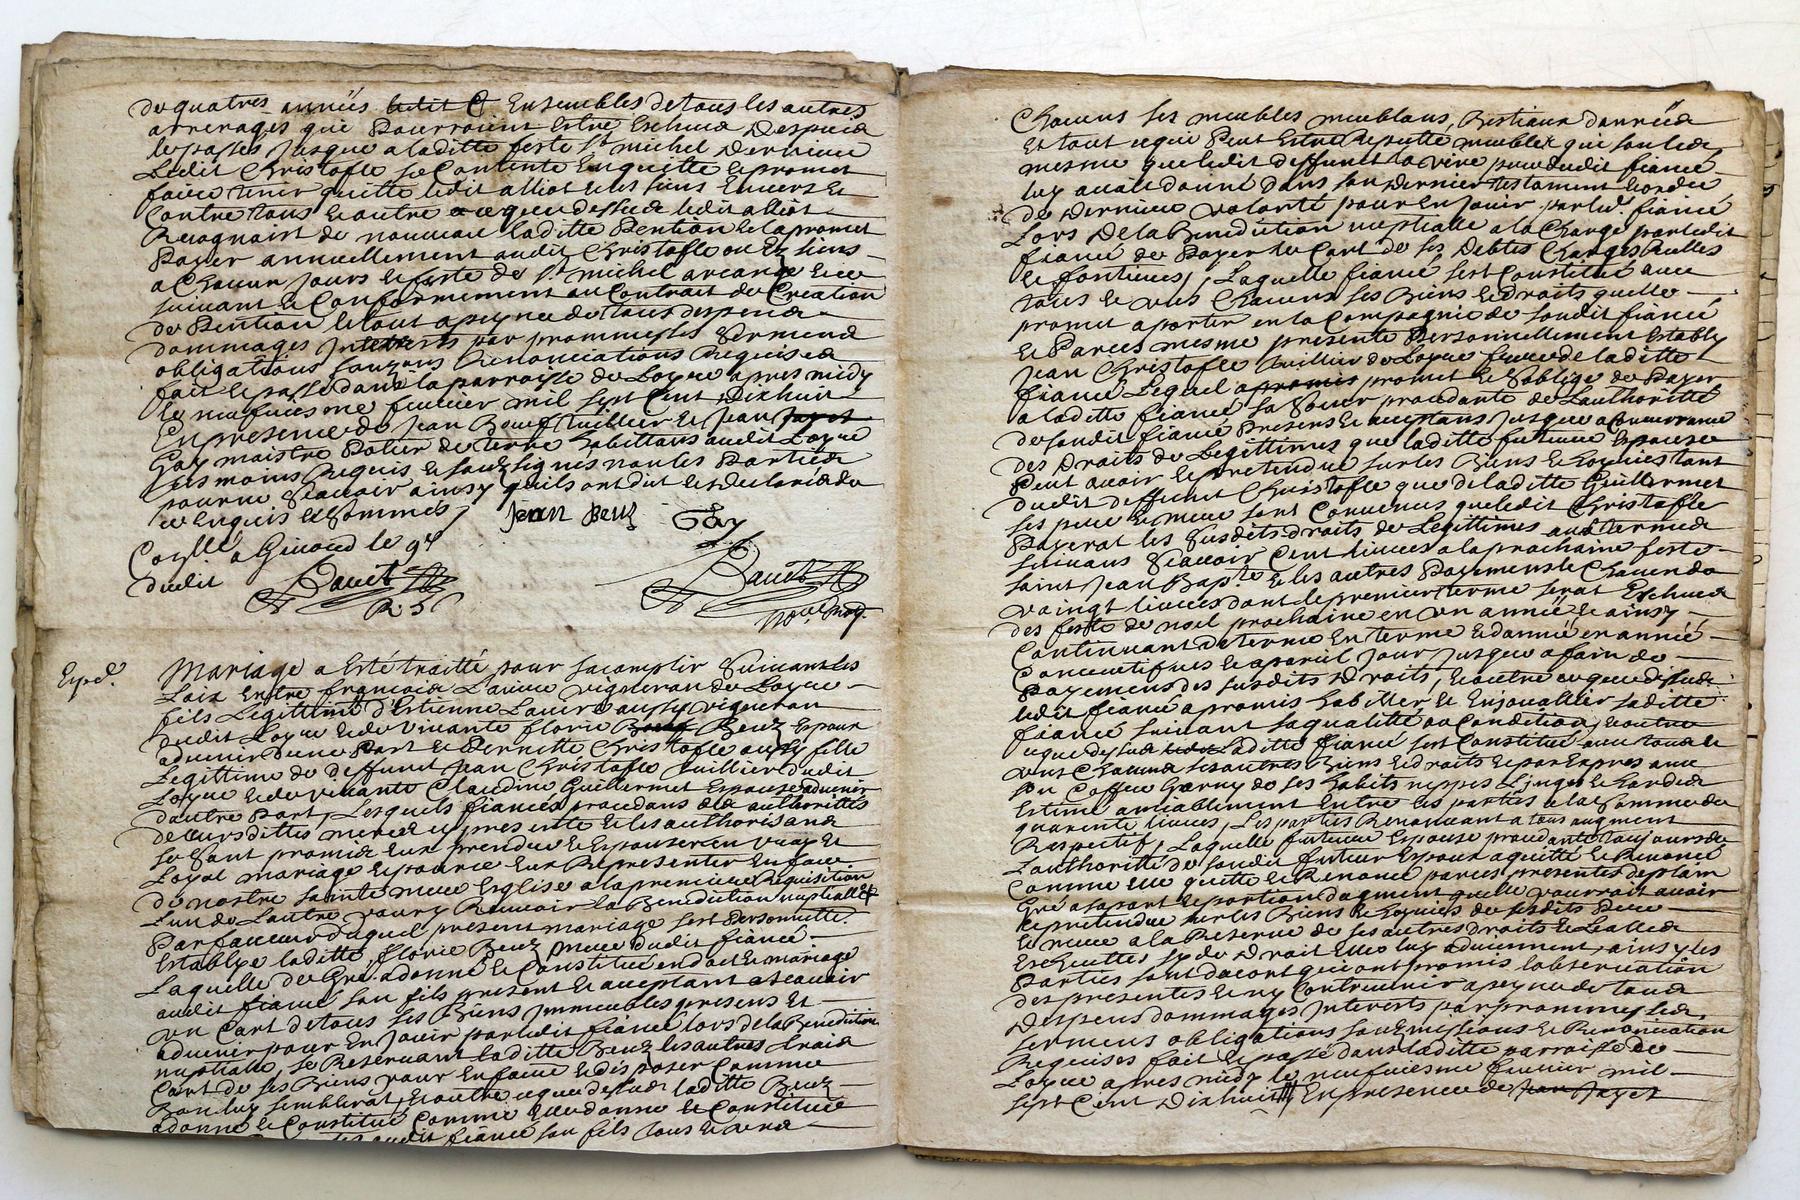 de quatres années ledit C Ensembles de tous les autres
arrerages que Pourroient Estre Escheus Despuis
le passés jusque a laditte feste St michel Derniere
Ledit Christofle se Contente En quitte Et promet
faire tenir quitte ledit alliot et les siens Envers Et
Contre tous Et outre ce que dessus ledit alliot
Recognoist de nouveau laditte Pention Et la promet
Payer annuellement audit Christofle ou Ez siens
a Chacun jours Et feste de St michel arcange Et ce
suivant Et Conformement au Contrat de Creation
de Pention le tout a peyne de tous despens
dommages Interets par prommesses serment
obligations sousmis Renonciations Requises
fait Et passé dans la parroisse de Loyre apres midy
Le neufuiesme feurier mil sept Cent Dixhuit
En presence de Jean Bouf tuillier Et Jean
Gay maistre Potier de terre habittans audit Loyre
tesmoins Requis Et sousignés non les Parties
pour ne sçavoir ainsy quils ont dit Et declaré de
ce Enquis Et sommés Jean Beuf Gay
Conllé a Girond le 9e
dudit Daudet Daudet
R 5 s nore Roy.
Exped.
Mariage a Esté traitté pour sacomplir Suivant les
Loix Entre francois Laviur vigneron de Loyre
fils Legittime d'Estienne Laviur aussy vigneron
dudit Loyre Et de vivante florie Beuz Espoux
advenir d'une Part Et Pernette Christofle aussy fille
Legittime de deffunct Jean Christofle tuillier dudit
Loyre Et de vivante Claudine Guillermet Espouse advenir
d'autre Part, Lesquels fiancés procedans des authorittés
de leurs dittes meres cy presente Et les authorisans
se sont promis Eux prendre Et Espouser en vray Et
Loyal mariage Et pource Eux Representer En face
de nostre sainte mere Esglise a la premiere Requisition
L'un de Lautre pour y Recevoir La Benediction nuptialle Et
Par faveur duquel present mariage sest Personnelle.t
Establye laditte florie Beuz mere dudit fiancé
Laquelle de Gré a donné Et Constitué en dot Et mariage
audit fiancé son fils present Et acceptant a scavoir
un Cart de tous ses Biens Immeubles presens Et
advenir pour En Jouir par ledit fiancé lors de la Benediction
nuptialle, se Reservant laditte Beuz les autres trois
Cart de ses Biens pour En faire Et disposer Comme
Bon luy semblerat, Et outre ce que dessus laditte Beuz
a donné Et Constitué Comme Elle donne Et Constitue
audit fiancé son fils tous Et uns
Chacuns ses meubles meublans, Bestiaux danrées
Et tout ce qui Peut Estre Reputté meubles qui sont les
mesme que ledit deffunct Lavire pere dudit fiancé
luy avait donné Dans son dernier testament Et ordre
de Derniere volonté pour En Jouir par led. fiancé
Lors De la Benediction nuptialle a la Charge par ledit
fiancé de Payer le Cart de ses Debtes Charges Reelles
Et fontieres, Laquelle fiancé sest Constittué avec
tous Et uns Chacuns ses Biens Et droits quelle
promet aporter en la Compagnie de sondit fiancé
Et Parces mesme presente Personnellement Estably
Jean Christofle tuillier de Loyre frere de laditte
fiancé Lequel promet Et soblige de Payer
a laditte fiancé sa soeur procedante de Lauthoritté
de sondit fiancé Present Et acceptans jusque a Concurrance
des Droits de Legittimes que laditte future Espouse
Peut avoir Et pretendre sur les Biens Et hoyries tant
dudit deffunct Christofle que de laditte Guillermet
ses pere Et mere sont Convenus que ledit Christofle
Payerat les Susdits droits de Legittimes aux termes
suivans scavoir Cent livres a la prochaine feste
saint Jean Bapte Et les autres Payemens de Chacun de
vaingt livres dont le premier terme serat Escheus
des feste de noel prochaine en un année Et ainsy
Continuant de terme En terme Et d'année en année
Consequtifues Et a pareil Jour jusque a fain de
Payemens des susdits Droits, Et outre ce que dessus
ledit fiancé a promis habiller Et Enjouallier laditte
fiancé suivant sa qualitté ou Condition, Et outre
ce que dessus laditte fiancé sest Constitué avec tous Et
uns Chacuns ses autres Biens Et droits Et par Expres avec
un Coffre Garny de ses habits nippes Linges Et hardes
Estimé amiablement Entre les parties a la somme de
quarente livres, Les parties Renonceant a tous augment
Respectif, Laquelle future Espouse procedante tousjours de
L'authorité de sondit futur Espoux a quitté Et Renoncé
Comme Elle quitte Et Renonce parces presentes de plain
Gré a sa part Et portion dagment quelle pourrait avoir
Et pretendre sur les Biens Et hoyries de sesdits Pere
Et mere a la Reserve de ses autres droits Et Loalles
Escheuttes sy de Droit Elles luy adviennent, ainsy les
Parties sont dacort qui ont promis l'observation
des presentes Et ny Contrevenir a peyne de tous
Despens dommages Interests par prommesses.
sermens obligations sousmissions Et Renonciation
Requises fait Et passé dans laditte parroisse de
Loyre apres midy le neufuiesme feurier mil
sept Cent Dixhuit En presence de Jean Jayet